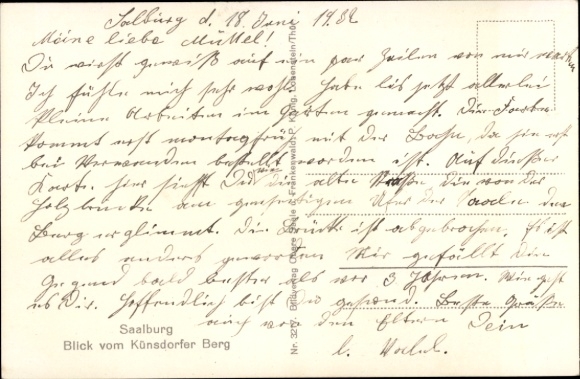 Saalburg d. 18. Juni 1932
Meine liebe Muttel!
Du wirst gewiß auf ein par Zeilen von mir warten
Ich fühle mich sehr wohl habe bis jetzt allerlei
kleine Arbeiten im Garten gemacht. Die
kommt erst montagfrüh mit der Bahn, da sie erst
bei Verwanden bestellt worden ist. Auf dießer
Karte hier siehst Du die alte Straße die von der
Holzbrücke am Ufer der Saale den
Berg erglimmt. Die Brücke ist abgebrochen. Es ist
alles anders geworden Mir gefällt die
Gegend bald besser als vor 3 Jahren. Wie geht
es Dir. Hoffendlich bist Du gesund. Beste Grüße
auch von den Eltern Dein
Saalburg
Blick vom Künsdorfer Berg
Nr. 3217. Bildverlag Obere Saale u. Frankenwald, P. König, Lobenstein/Thür.